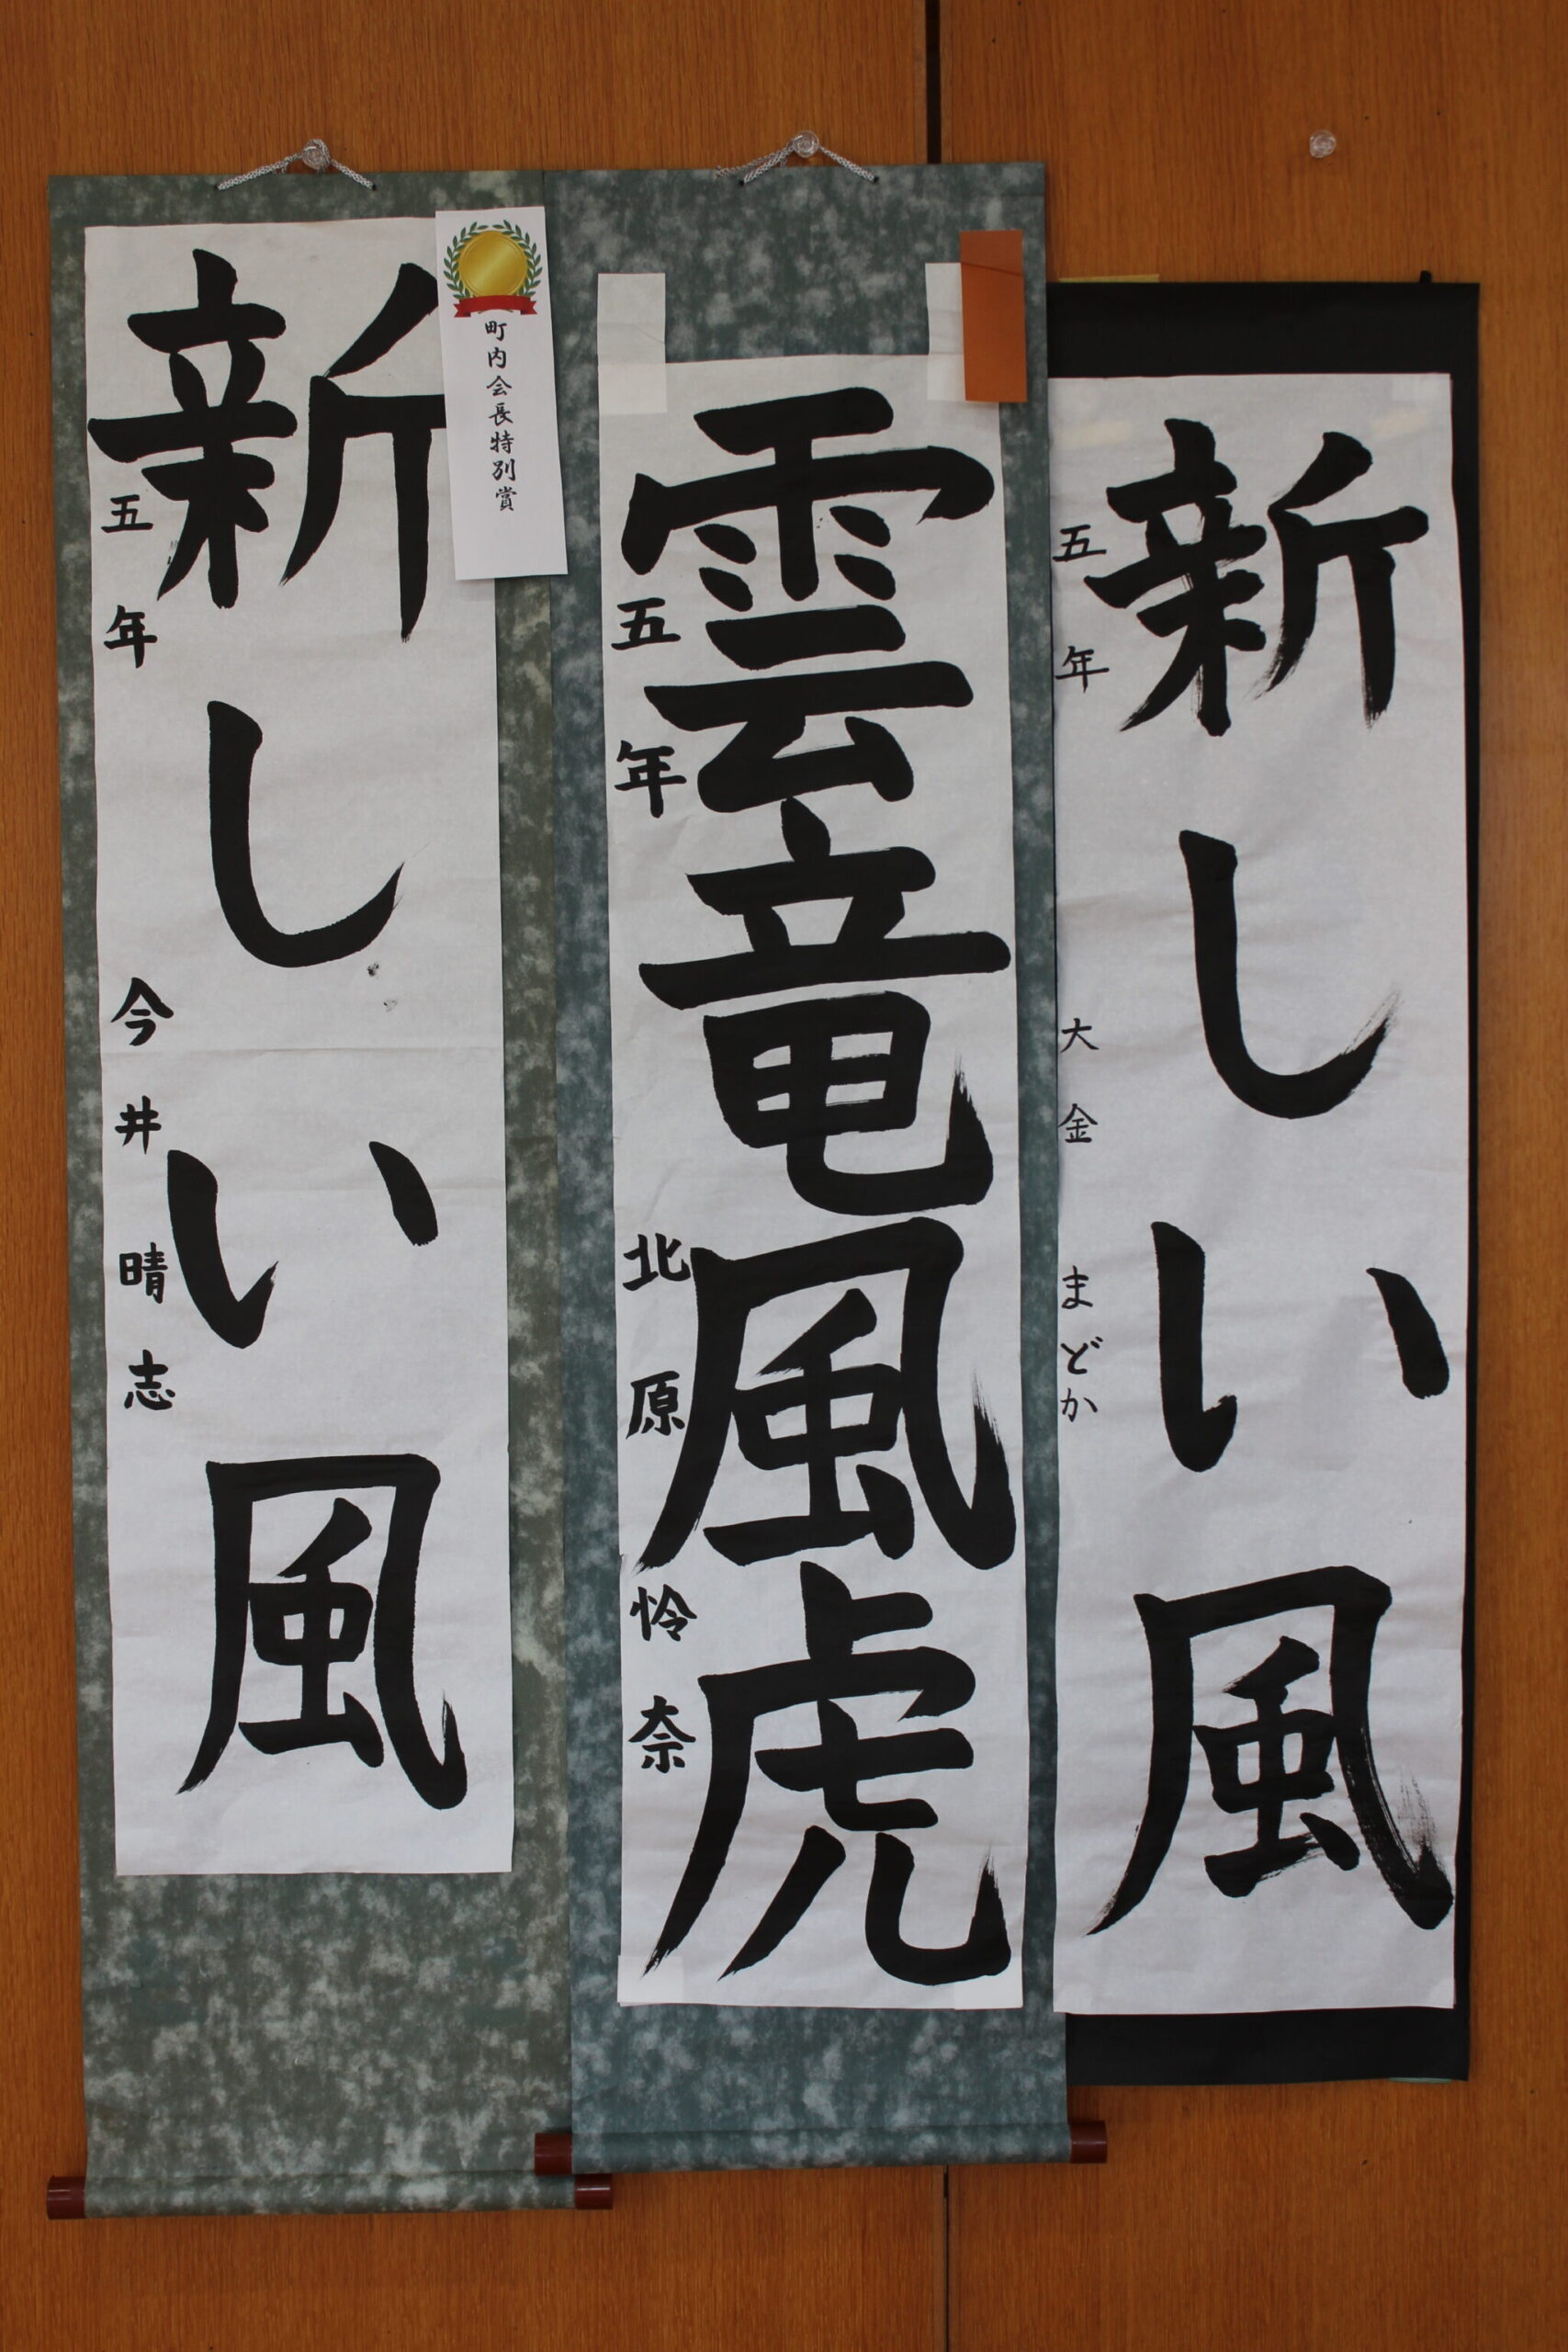 新しい風
五年 大金 まどか
雲竜風虎
五年 北原 怜奈
町内会長特別賞
新しい風
五年 今井 晴志